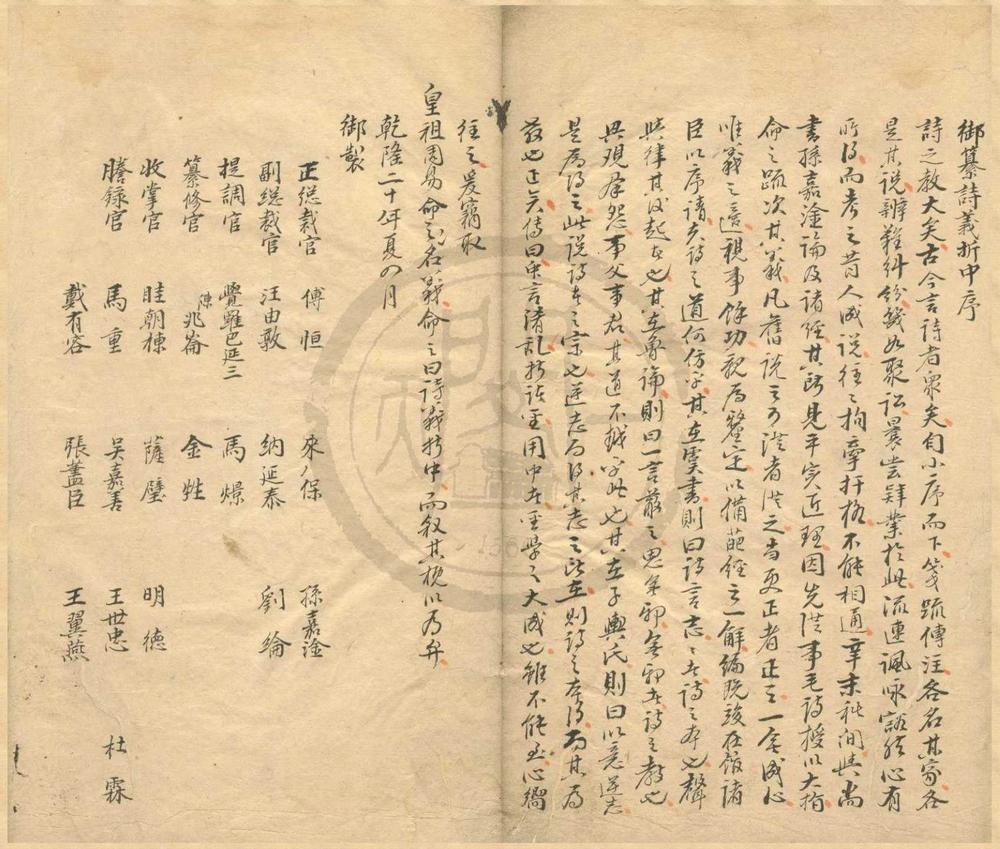 御纂詩義折中序
詩之教大矣古今言詩者衆矣自小序而下箋疏傳注各名其家各
是其說辨難糾紛幾如聚訟曩嘗肄業於此流連諷咏豁然心有
所得而考之昔人成說往〻拘牽扞格不能相通辛未秋間與尚
書孫嘉淦論及諸經其所見平實近理因先從事毛詩授以大指
命之疏次其義凡舊說之可從者從之當更正者正之一無成心
唯義之適視事餘功親為釐定以備葩經之一解編既竣在館諸
臣以序請夫詩之道何仿乎其在虞書則曰詩言志〻者詩之本也聲
與律其後起者也其在魯論則曰一言蔽之思無邪無邪者詩之教也
興觀羣怨事父事君其道不越乎此也其在子輿氏則曰以意逆志
是為得之此說詩者之宗也逆志而得其志之所在則詩之本得而其為
教也正矣傳曰衆言淆亂折諸聖用中者聖學之大成也雖不能至心嚮
往之爰竊取
皇祖周易命名之義命之曰詩義折中而叙其梗以為弁
乾隆二十年夏四月
御製
正總裁官 傅恒 來保 孫嘉淦
副總裁官 汪由敦 納延泰 劉綸
提調官 覺羅巴延三 馬燝
纂修官 陳兆崙 金甡
收掌官 眭朝棟 薩璧 明德
謄錄官 馬重 吳嘉善 王世忠 杜霖
戴有容 張藎臣 王翼燕